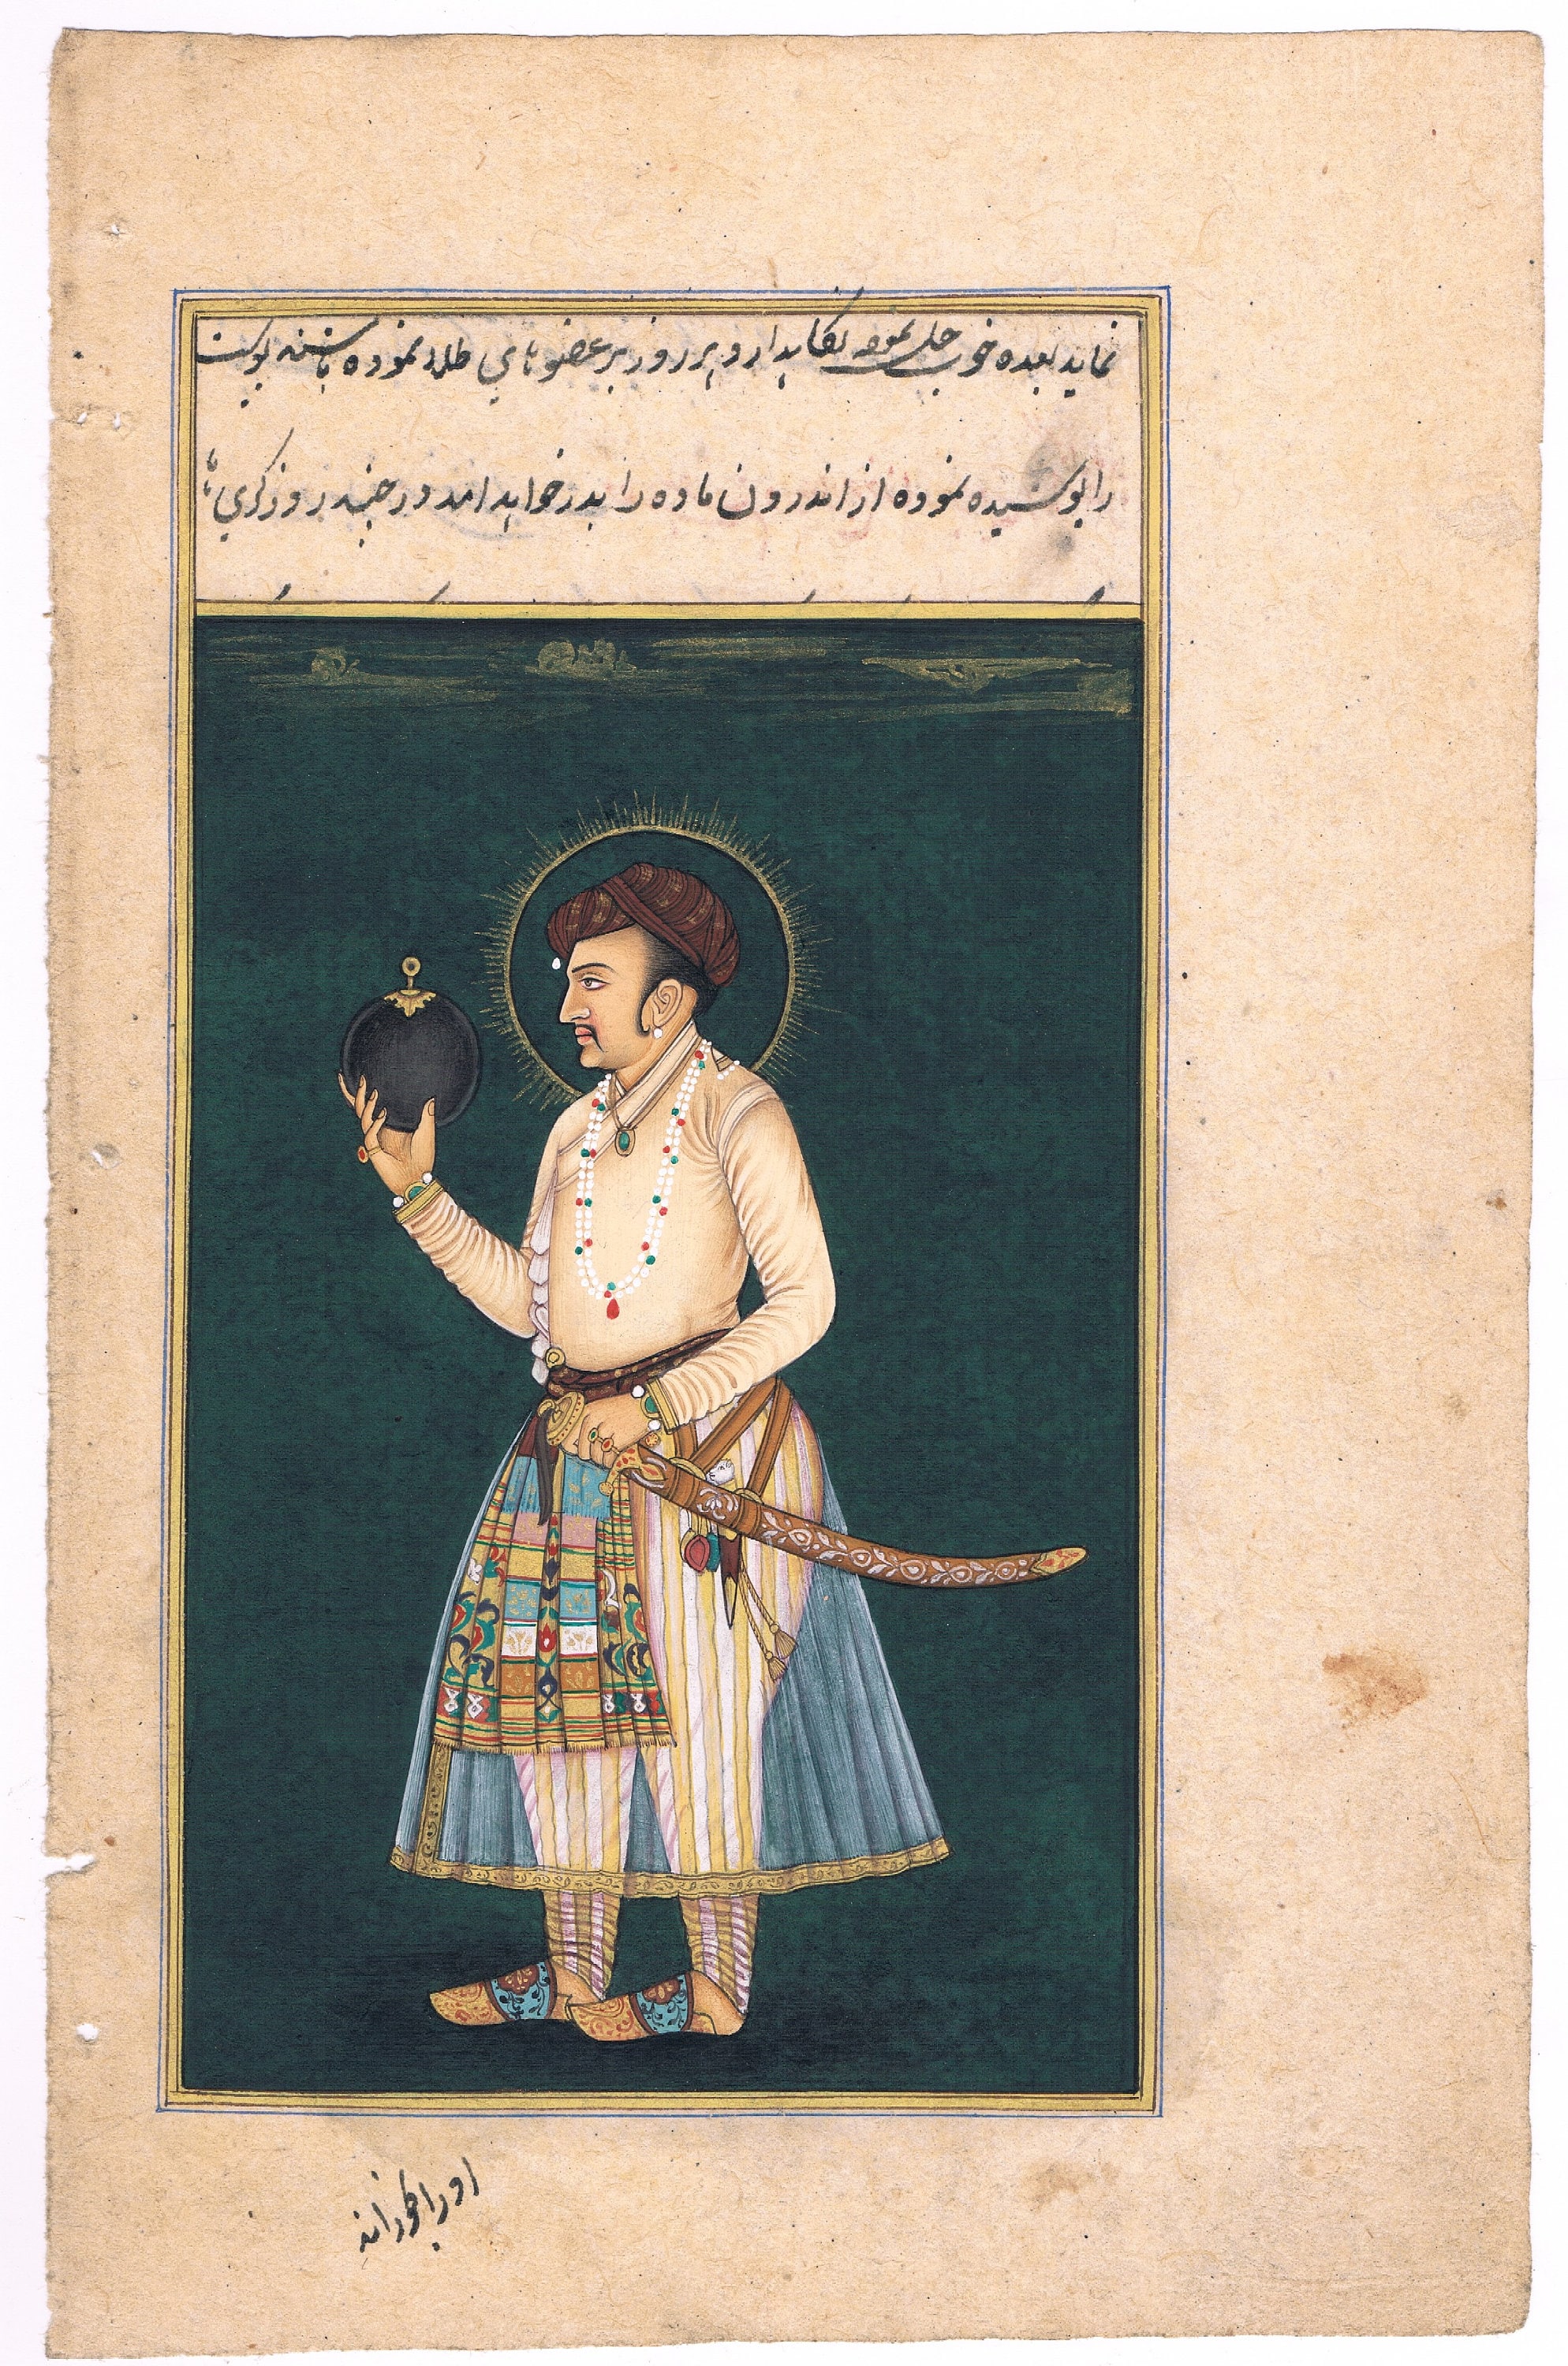 نمايد بعده خوب حل نموده نگاہدارد و ہر روز بر عضو تاي طلا نموده باشند پوست
را پوشيده نموده از اندرون ماده را بدر خواہد امد در چند روز کري
اور